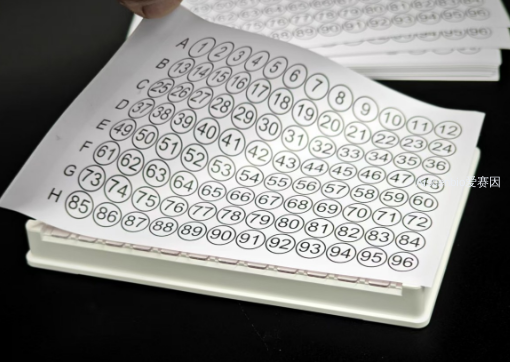 A 1 2 3 4 5 6 7 8 9 10 11 12
B 13 14 15 16 17 18 19 20 21 22 23 24
C 25 26 27 28 29 30 31 32 33 34 35 36
D 37 38 39 40 41 42 43 44 45 46 47 48
E 49 50 51 52 53 54 55 56 57 58 59 60
F 61 62 63 64 65 66 67 68 69 70 71 72
G 73 74 75 76 77 78 79 80 81 82 83 84
H 85 86 87 88 89 90 91 92 93 94 95 96
爱赛因